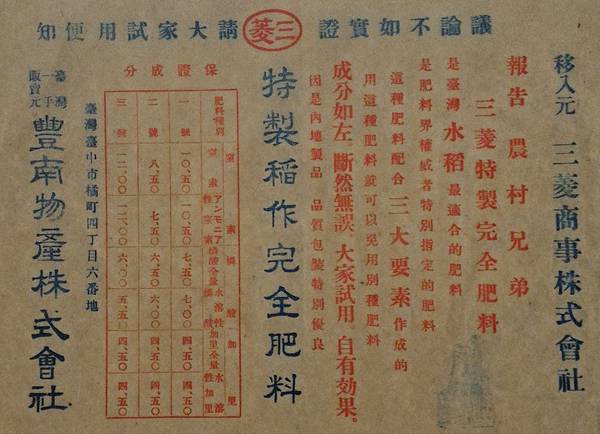 議論不如實證 三菱 請大家試用便知
移入元 三菱商事株式會社
報告 農村兄弟
三菱特製完全肥料
是臺灣水稻最適合的肥料
是肥料界權威者特別指定的肥料
這種肥料配合三大要素作成的
用這種肥料就可以免用別種肥料
成分如左、斷然無誤、大家試用。自有効果。
因是內地製品 品質包裝特別優良
特製稻作完全肥料
保證成分
肥料種別 一號 二號 三號
窒素 窒素全量 一〇、五〇 八、五〇 一二、〇〇
アンモニア性窒素 一〇、五〇 七、五〇 一二、〇〇
燐酸 燐酸全量 七、五〇 六、〇〇 六、〇〇
水溶性燐酸 七、〇〇 六、〇〇 五、五〇
加里 加里全量 四、五〇 四、五〇 四、五〇
水溶性加里 四、五〇 四、五〇 四、五〇
臺灣臺中市橘町四丁目六番地
臺灣一手販賣元 豐南物產株式會社